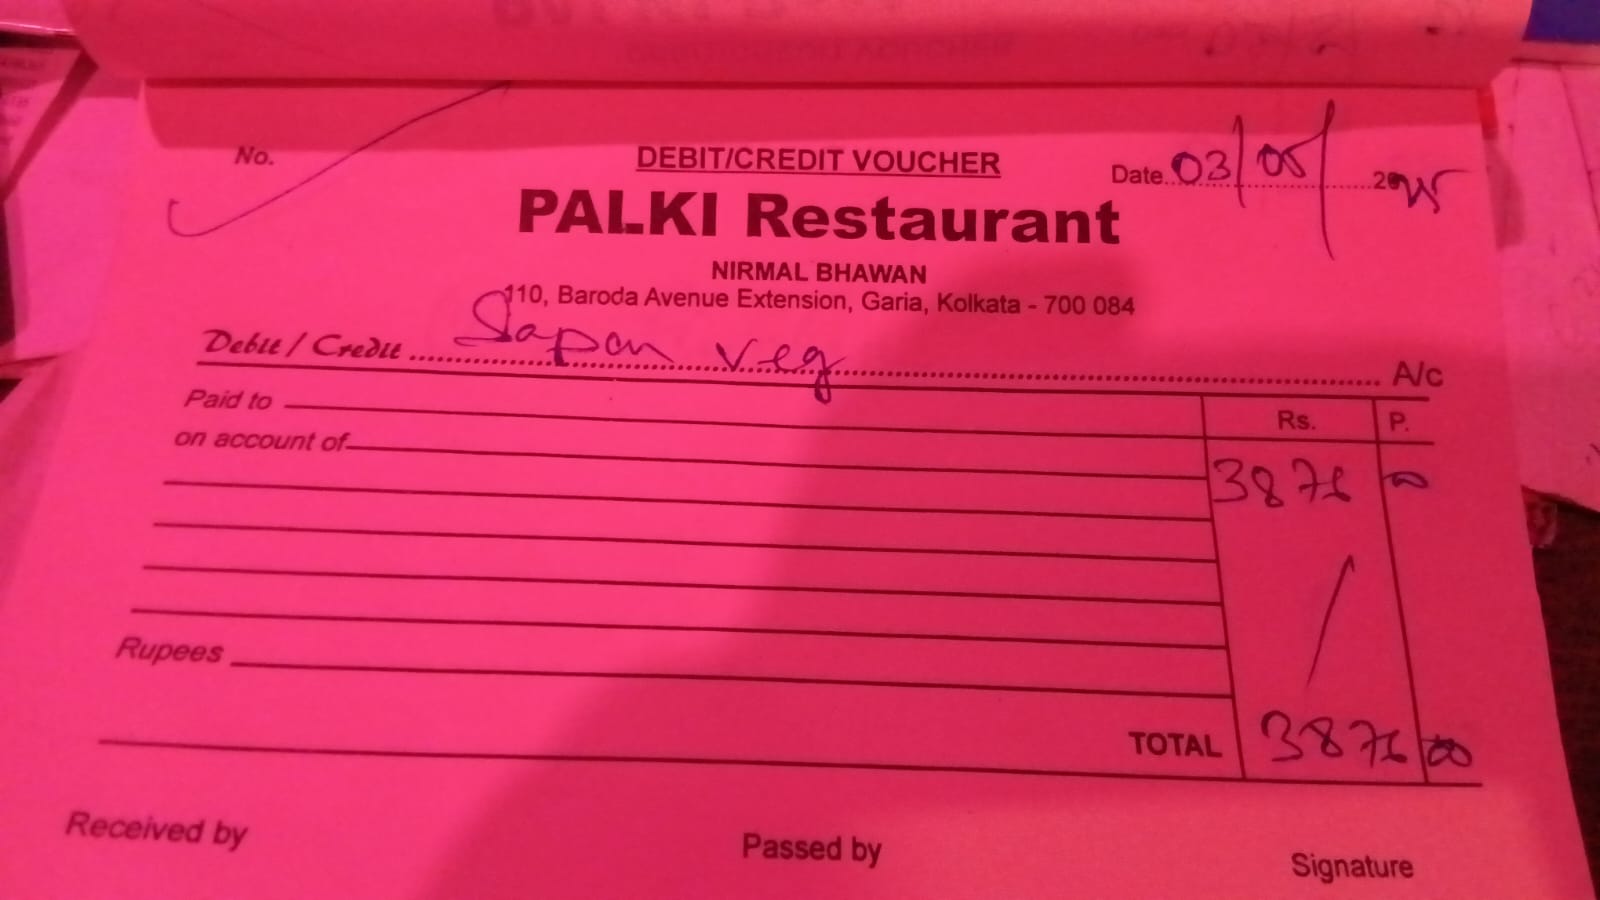 No.
DEBIT/CREDIT VOUCHER
Date 03/05/2025
PALKI Restaurant
NIRMAL BHAWAN
110, Baroda Avenue Extension, Garia, Kolkata - 700 084
Debit / Credit Sapan veg A/c
Paid to
Rs. P.
on account of
3876 00
Rupees
TOTAL 3876 00
Received by
Passed by
Signature